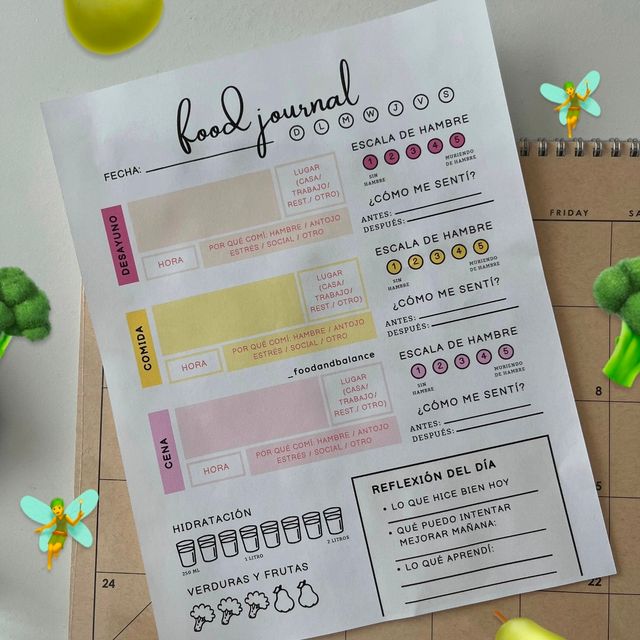 food journal
D L M W J V S
FECHA:
DESAYUNO
LUGAR
(CASA/
TRABAJO/
REST./ OTRO)
HORA
POR QUÉ COMÍ: HAMBRE / ANTOJO
ESTRÉS / SOCIAL / OTRO
ESCALA DE HAMBRE
1 2 3 4 5
SIN
HAMBRE
MURIENDO
DE HAMBRE
¿CÓMO ME SENTÍ?
ANTES:
DESPUÉS:
COMIDA
LUGAR
(CASA/
TRABAJO/
REST./ OTRO)
HORA
POR QUÉ COMÍ: HAMBRE / ANTOJO
ESTRÉS / SOCIAL / OTRO
ESCALA DE HAMBRE
1 2 3 4 5
SIN
HAMBRE
MURIENDO
DE HAMBRE
¿CÓMO ME SENTÍ?
ANTES:
DESPUÉS:
_foodandbalance
CENA
LUGAR
(CASA/
TRABAJO/
REST./ OTRO)
HORA
POR QUÉ COMÍ: HAMBRE / ANTOJO
ESTRÉS / SOCIAL / OTRO
ESCALA DE HAMBRE
1 2 3 4 5
SIN
HAMBRE
MURIENDO
DE HAMBRE
¿CÓMO ME SENTÍ?
ANTES:
DESPUÉS:
HIDRATACIÓN
250 ML
1 LITRO
2 LITROS
VERDURAS Y FRUTAS
REFLEXIÓN DEL DÍA
• LO QUE HICE BIEN HOY
• QUÉ PUEDO INTENTAR
MEJORAR MAÑANA:
• LO QUÉ APRENDÍ:
FRIDAY
8
24
22